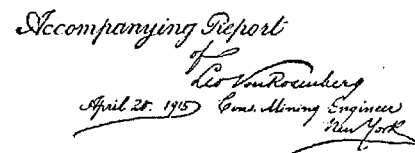 Accompanying Report
of
Leo Von Rosenberg
April 28. 1915 Cons. Mining Engineer
New York